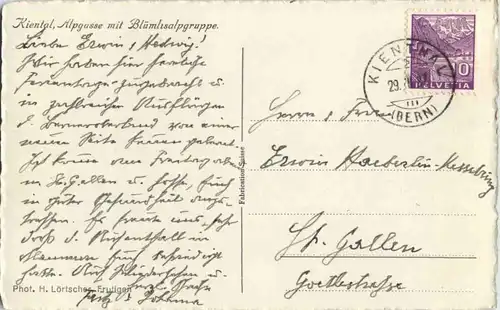 Kiental, Alpgasse mit Blümlisalpgruppe.
Liebe Erwin & Hedwig!
Wir haben hier herrliche
Ferientage zugebracht u.
in zahlreichen Ausflügen
d. Berneroberland von einer
neuen Seite kennen gelernt.
Ich komme am Freitag
in St. Gallen u. hoffe, Euch
in guter Gesundheit anzu-
treffen. Es freute uns sehr
dass d. Aufenthalt in
Euch befriedigt
hatte. Auf Wiedersehen u.
herzl. Grüsse
Fritz &
Phot. H. Lörtscher, Frutigen
Fabrication Suisse
KIENTHAL
29.
(BERN)
10
HELVETIA
Herrn & Frau
Erwin Haeberlin-
St. Gallen
Goethestrasse